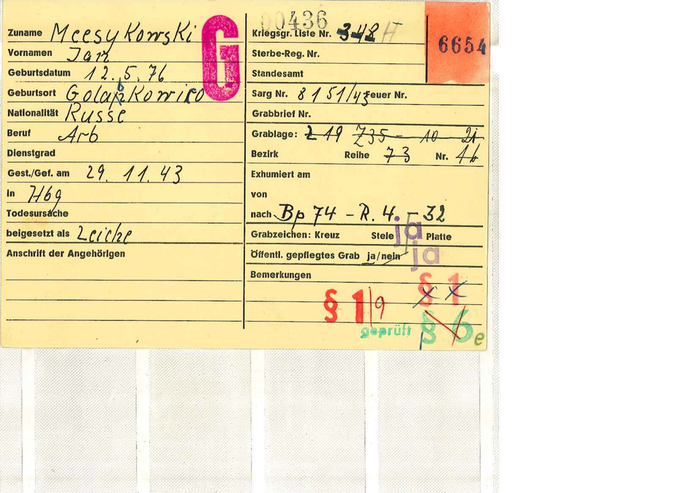 Zuname Meesykowski
Vornamen Jan
Geburtsdatum 12.5.76
Geburtsort
Nationalität Russe
Beruf Arb
Dienstgrad
Gest./Gef. am 29.11.43
in Hbg
Todesursache
beigesetzt als Leiche
Anschrift der Angehörigen
G
00436
Kriegsgr. Liste Nr. 348 H
6654
Sterbe-Reg. Nr.
Standesamt
Sarg Nr. 8151/43 Feuer Nr.
Grabbrief Nr.
Grablage: Z 19 Z35 - 10 - 21
Bezirk Reihe 73 Nr. 16
Exhumiert am
von
nach Bp 74 - R. 4. - 32
Grabzeichen: Kreuz Stele ja Platte
Öffentl. gepflegtes Grab ja/nein ja
Bemerkungen
§ 1
x x
§ 1/9
geprüft § 6 e